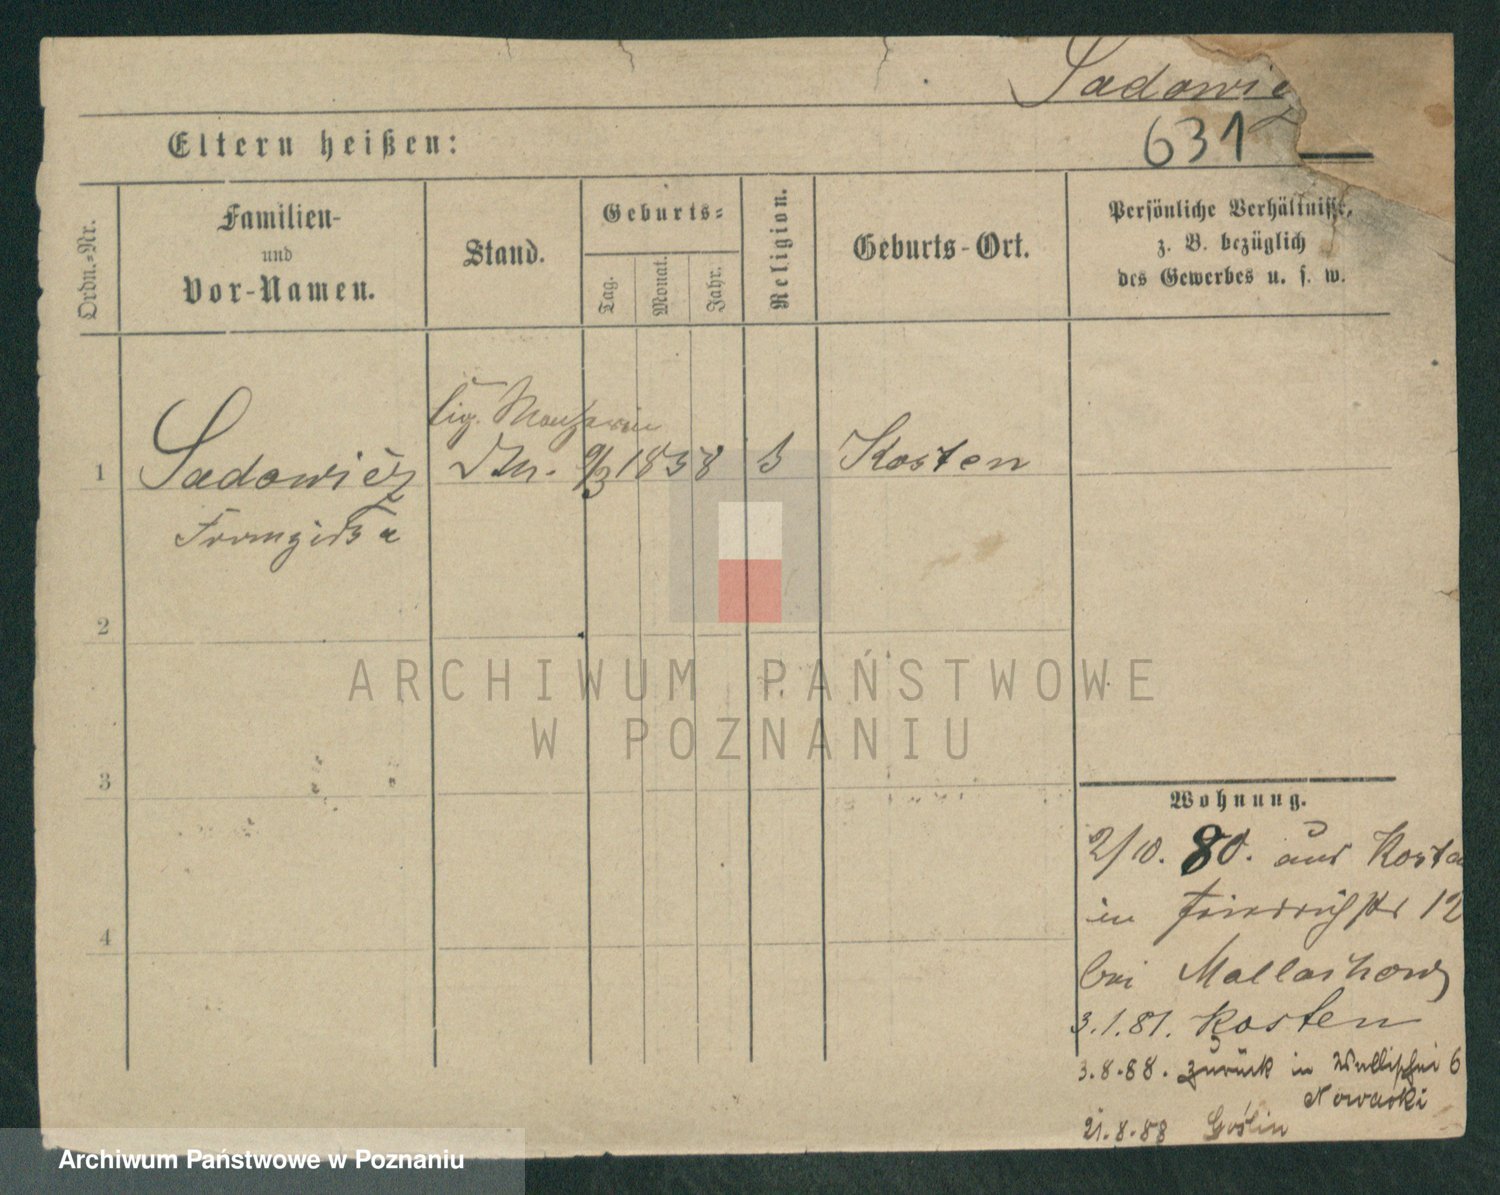 Sadowicz
Eltern heißen:
631
Ordn.-Nr.
Familien-
und
Vor-Namen.
Stand.
Geburts-
Tag.
Monat.
Jahr.
Religion.
Geburts-Ort.
Persönliche Verhältnisse,
z. B. bezüglich
des Gewerbes u. s. w.
1 Sadowicz 9/3 1838 Kosten
Franziska
2
3
4
Wohnung.
2/10. 80. aus Kosten
in Friedrichstr 12
bei
3.1.81. Kosten
3.8.88. zurück in Wallischei 6
Nowacki
21.8.88 Goslin
ARCHIWUM PAŃSTWOWE
W POZNANIU
Archiwum Państwowe w Poznaniu